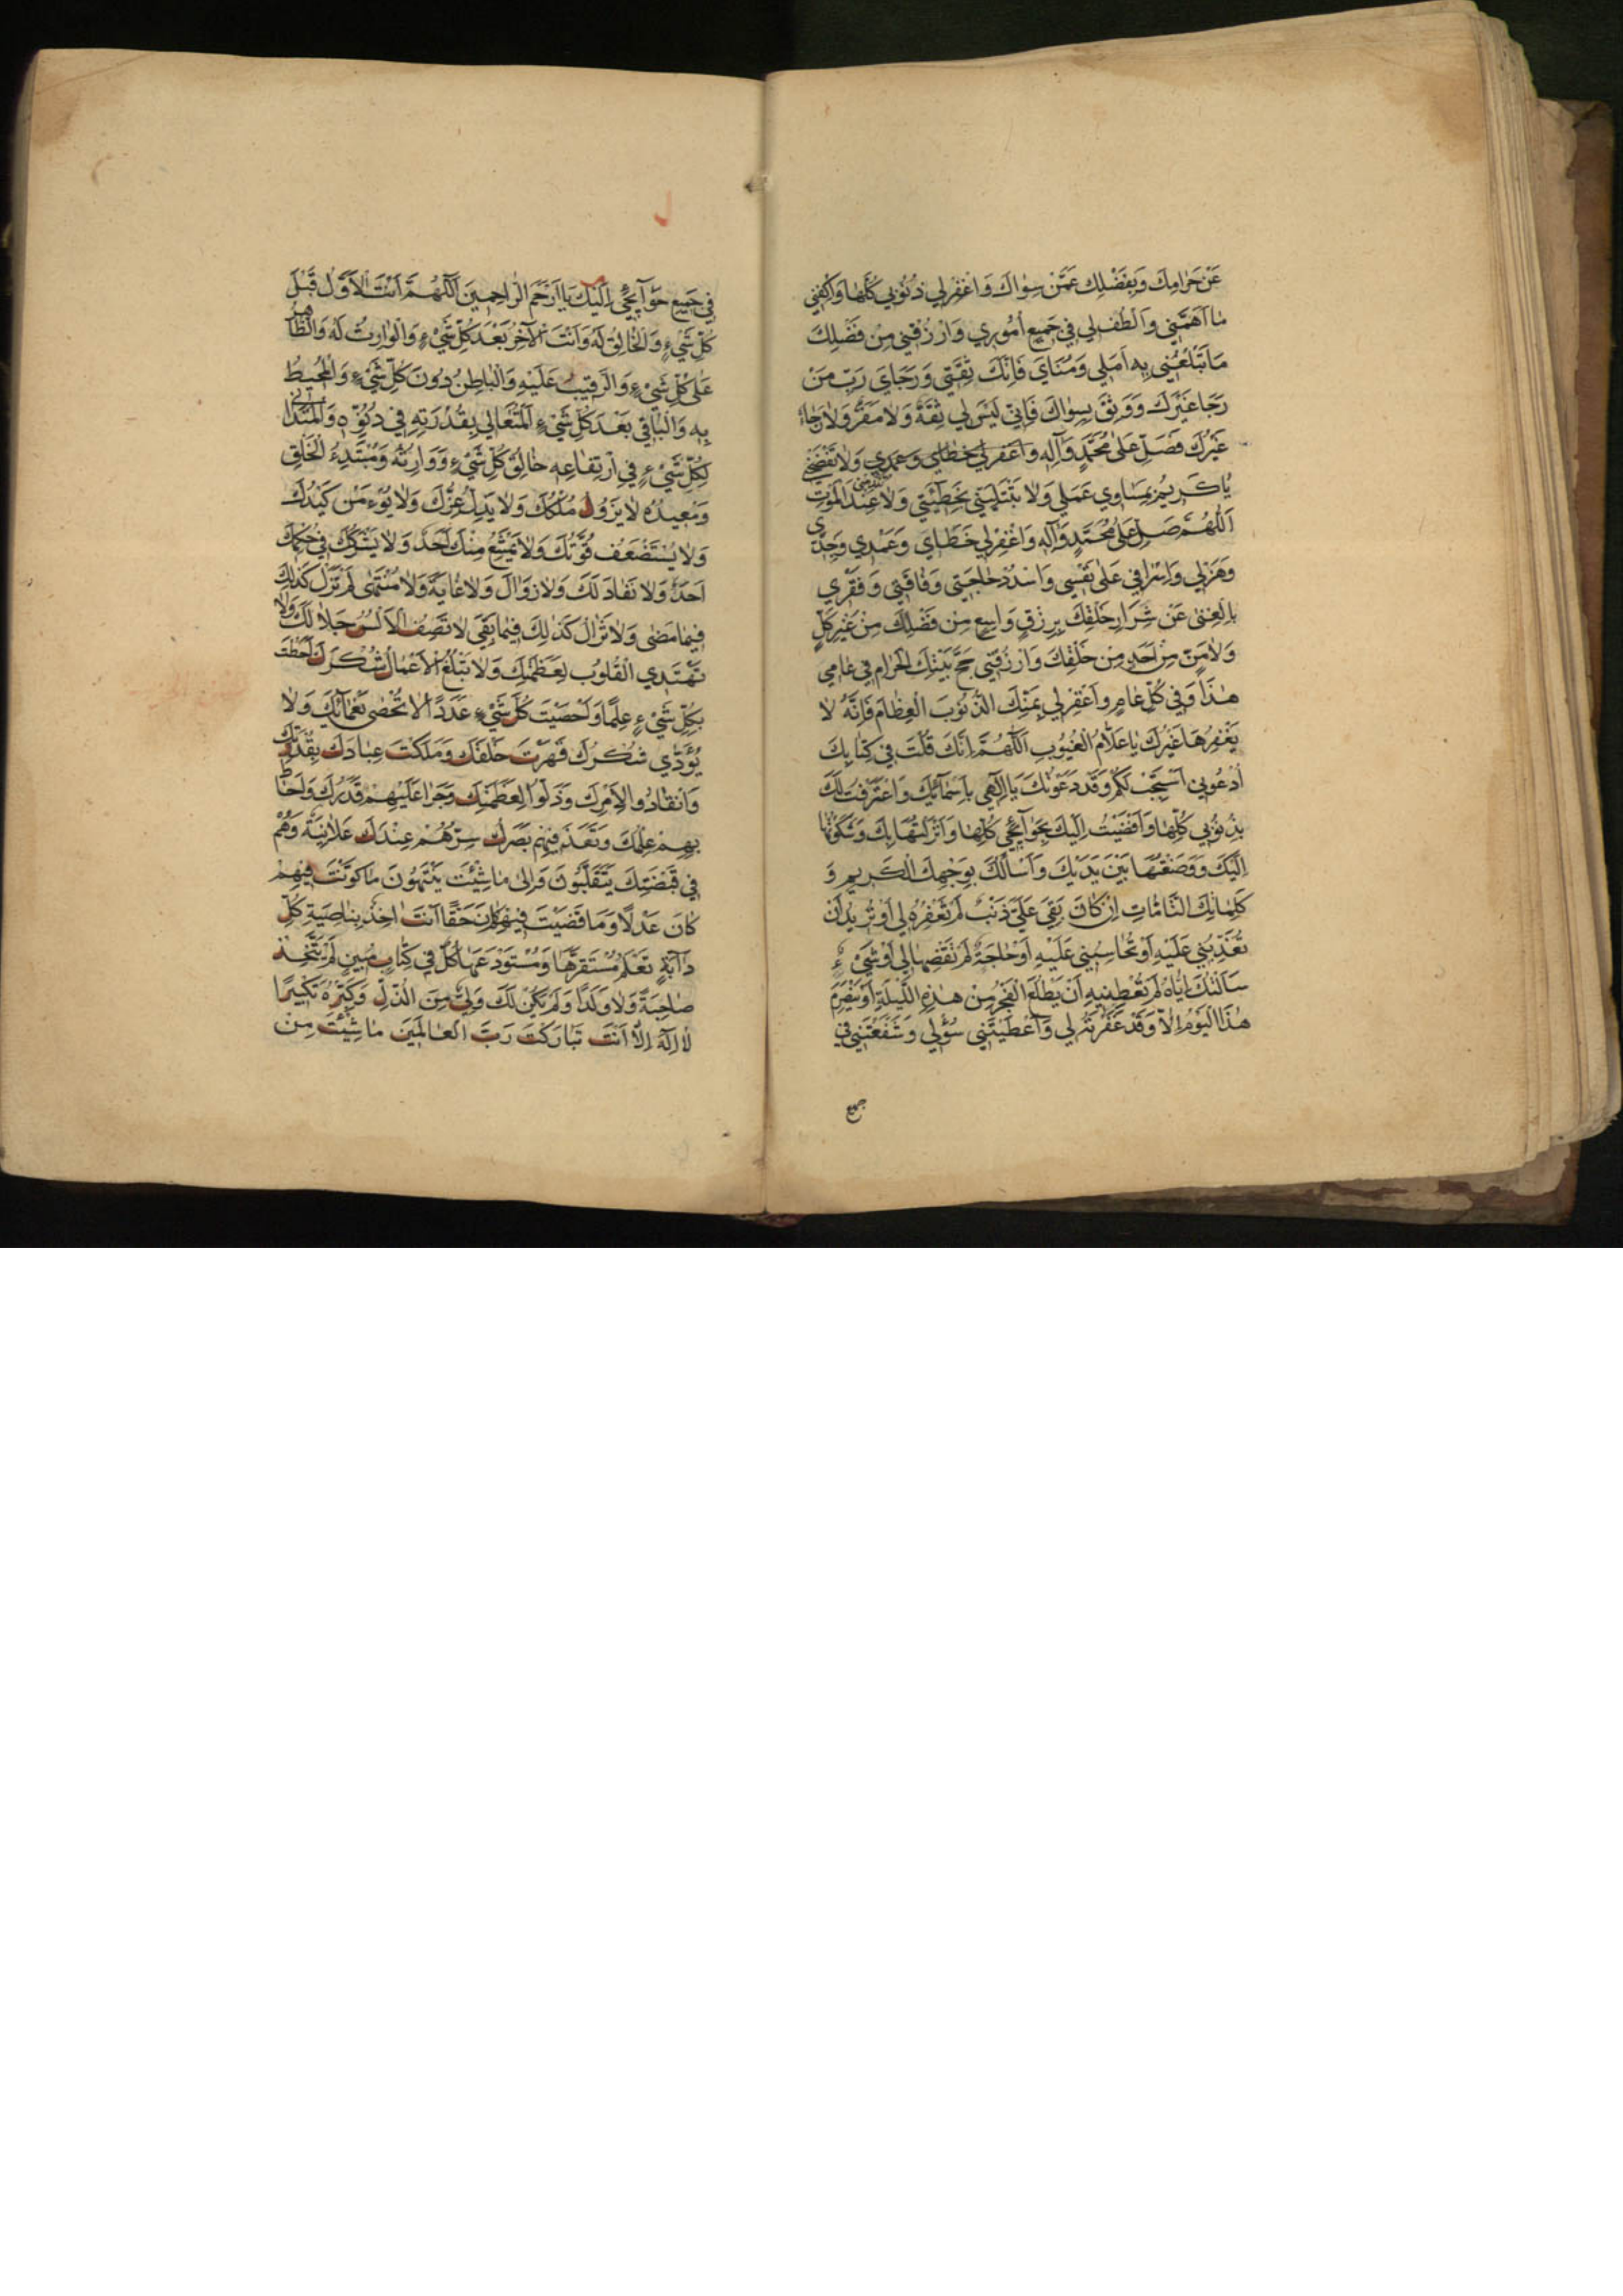 عَنْ حَرَامِكَ وَبِفَضْلِكَ عَمَّنْ سِوَاكَ وَاغْفِرْ لِي ذُنُوبِي كُلَّهَا وَاكْفِنِي
مَا اَهَمَّنِي وَالْطُفْ لِي فِي جَمِيعِ اُمُورِي وَارْزُقْنِي مِنْ فَضْلِكَ
مَا تُبَلِّغُنِي بِهِ اَمَلِي وَمُنَايَ فَاِنَّكَ ثِقَتِي وَرَجَايَ رَبِّ مَنْ
رَجَا غَيْرَكَ وَوَثِقَ بِسِوَاكَ فَاِنِّي لَيْسَ لِي ثِقَةٌ وَلَا مَفَرٌّ وَلَا رَجَاءٌ
غَيْرُكَ فَصَلِّ عَلَى مُحَمَّدٍ وَآلِهِ وَاغْفِرْ لِي خَطَايَ وَعَمْدِي وَلَا تَفْضَحْنِي
يَا كَرِيمُ بِمَسَاوِي عَمَلِي وَلَا تَبْتَلِيَنِّي بِخَطِيئَتِي وَلَا عِنْدَ الْمَوْتِ
اَللّٰهُمَّ صَلِّ عَلَى مُحَمَّدٍ وَآلِهِ وَاغْفِرْ لِي خَطَايَ وَعَمْدِي وَجِدِّي
وَهَزْلِي وَاِسْرَافِي عَلَى نَفْسِي وَاسْدُدْ حَاجَتِي وَفَاقَتِي وَفَقْرِي
بِالْغِنَى عَنْ شِرَارِ خَلْقِكَ بِرِزْقٍ وَاسِعٍ مِنْ فَضْلِكَ مِنْ غَيْرِ كَدٍّ
وَلَا مَنٍّ مِنْ اَحَدٍ مِنْ خَلْقِكَ وَارْزُقْنِي حَجَّ بَيْتِكَ الْحَرَامِ فِي عَامِي
هٰذَا وَفِي كُلِّ عَامٍ وَاغْفِرْ لِي بِمَنِّكَ الذُّنُوبَ الْعِظَامَ فَاِنَّهُ لَا
يَغْفِرُهَا غَيْرُكَ يَا عَلَّامَ الْغُيُوبِ اَللّٰهُمَّ اِنَّكَ قُلْتَ فِي كِتَابِكَ
اُدْعُونِي اَسْتَجِبْ لَكُمْ وَقَدْ دَعَوْتُكَ يَا اِلٰهِي بِاَسْمَائِكَ وَاعْتَرَفْتُ لَكَ
بِذُنُوبِي كُلِّهَا وَاَفْضَيْتُ اِلَيْكَ بِحَوَائِجِي كُلِّهَا وَاَنْزَلْتُهَا بِكَ وَشَكَوْتُهَا
اِلَيْكَ وَوَضَعْتُهَا بَيْنَ يَدَيْكَ وَاَسْاَلُكَ بِوَجْهِكَ الْكَرِيمِ وَ
كَلِمَاتِكَ التَّامَّاتِ اِنْ كَانَ بَقِيَ عَلَيَّ ذَنْبٌ لَمْ تَغْفِرْهُ لِي اَوْ تُرِيدُ اَنْ
تُعَذِّبَنِي عَلَيْهِ اَوْ تُحَاسِبَنِي عَلَيْهِ اَوْ حَاجَةٌ لَمْ تَقْضِهَا لِي اَوْ شَيْءٌ
سَاَلْتُكَ اِيَّاهُ لَمْ تُعْطِنِيهِ اَنْ يَطْلُعَ الْفَجْرُ مِنْ هٰذِهِ اللَّيْلَةِ اَوْ يَنْصَرِمَ
هٰذَا الْيَوْمُ اِلَّا وَقَدْ غَفَرْتَهُ لِي وَاَعْطَيْتَنِي سُؤْلِي وَشَفَّعْتَنِي فِي
فِي جَمِيعِ حَوَائِجِي اِلَيْكَ يَا اَرْحَمَ الرَّاحِمِينَ اَللّٰهُمَّ اَنْتَ الْاَوَّلُ قَبْلَ
كُلِّ شَيْءٍ وَالْخَالِقُ لَهُ وَاَنْتَ الْآخِرُ بَعْدَ كُلِّ شَيْءٍ وَالْوَارِثُ لَهُ وَالظَّاهِرُ
عَلَى كُلِّ شَيْءٍ وَالرَّقِيبُ عَلَيْهِ وَالْبَاطِنُ دُونَ كُلِّ شَيْءٍ وَالْمُحِيطُ
بِهِ وَالْبَاقِي بَعْدَ كُلِّ شَيْءٍ اَلْمُتَعَالِي بِقُدْرَتِهِ فِي دُنُوِّهِ وَالْمُتَدَانِي
لِكُلِّ شَيْءٍ فِي ارْتِفَاعِهِ خَالِقُ كُلِّ شَيْءٍ وَوَارِثُهُ وَمُبْتَدِئُ الْخَلْقِ
وَمُعِيدُهُ لَا يَزُولُ مُلْكُكَ وَلَا يَذِلُّ عِزُّكَ وَلَا يُؤْمَنُ كَيْدُكَ
وَلَا يُسْتَضْعَفُ قُوَّتُكَ وَلَا يَمْتَنِعُ مِنْكَ اَحَدٌ وَلَا يَشْرَكُكَ فِي حُكْمِكَ
اَحَدٌ وَلَا نَفَادَ لَكَ وَلَا زَوَالَ وَلَا غَايَةَ وَلَا مُنْتَهَى لَمْ تَزَلْ كَذٰلِكَ
فِيمَا مَضَى وَلَا تَزَالُ كَذٰلِكَ فِيمَا بَقِيَ لَا تَصِفُ الْاَلْسُنُ جَلَالَكَ وَلَا
تَهْتَدِي الْقُلُوبُ لِعَظَمَتِكَ وَلَا تَبْلُغُ الْاَعْمَالُ شُكْرَكَ اَحَطْتَ
بِكُلِّ شَيْءٍ عِلْمًا وَاَحْصَيْتَ كُلَّ شَيْءٍ عَدَدًا لَا تُحْصَى نَعْمَاؤُكَ وَلَا
يُؤَدَّى شُكْرُكَ قَهَرْتَ خَلْقَكَ وَمَلَكْتَ عِبَادَكَ بِقُدْرَتِكَ
وَانْقَادُوا لِاَمْرِكَ وَذَلُّوا لِعَظَمَتِكَ وَجَرَا عَلَيْهِمْ قَدَرُكَ وَاَحَاطَ
بِهِمْ عِلْمُكَ وَنَفَذَ فِيهِمْ بَصَرُكَ سِرُّهُمْ عِنْدَكَ عَلَانِيَةٌ وَهُمْ
فِي قَبْضَتِكَ يَتَقَلَّبُونَ وَاِلَى مَا شِئْتَ يَنْتَهُونَ مَا كَوَّنْتَ فِيهِمْ
كَانَ عَدْلًا وَمَا قَضَيْتَ فِيهِمْ كَانَ حَقًّا اَنْتَ آخِذٌ بِنَاصِيَةِ كُلِّ
دَآبَّةٍ تَعْلَمُ مُسْتَقَرَّهَا وَمُسْتَوْدَعَهَا كُلٌّ فِي كِتَابٍ مُبِينٍ لَمْ يَتَّخِذْ
صَاحِبَةً وَلَا وَلَدًا وَلَمْ يَكُنْ لَكَ وَلِيٌّ مِنَ الذُّلِّ وَكَبِّرْهُ تَكْبِيرًا
لَا اِلٰهَ اِلَّا اَنْتَ تَبَارَكْتَ رَبَّ الْعَالَمِينَ مَا شِئْتَ مِنْ